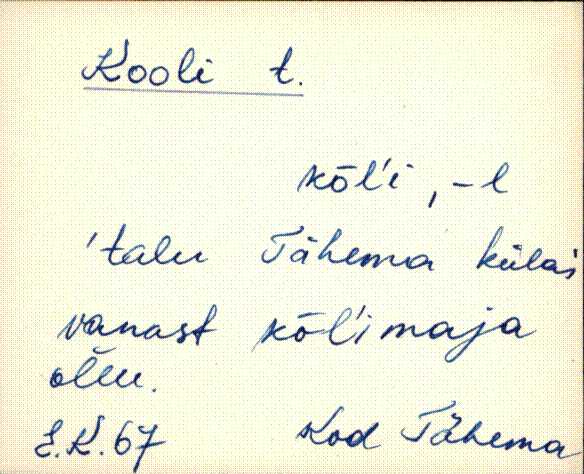 Kooli t.
kōl'i, -l
'talu Tähema külas
vanast kōl'imaja
olnu.
E.K. 67 Kod Tähema